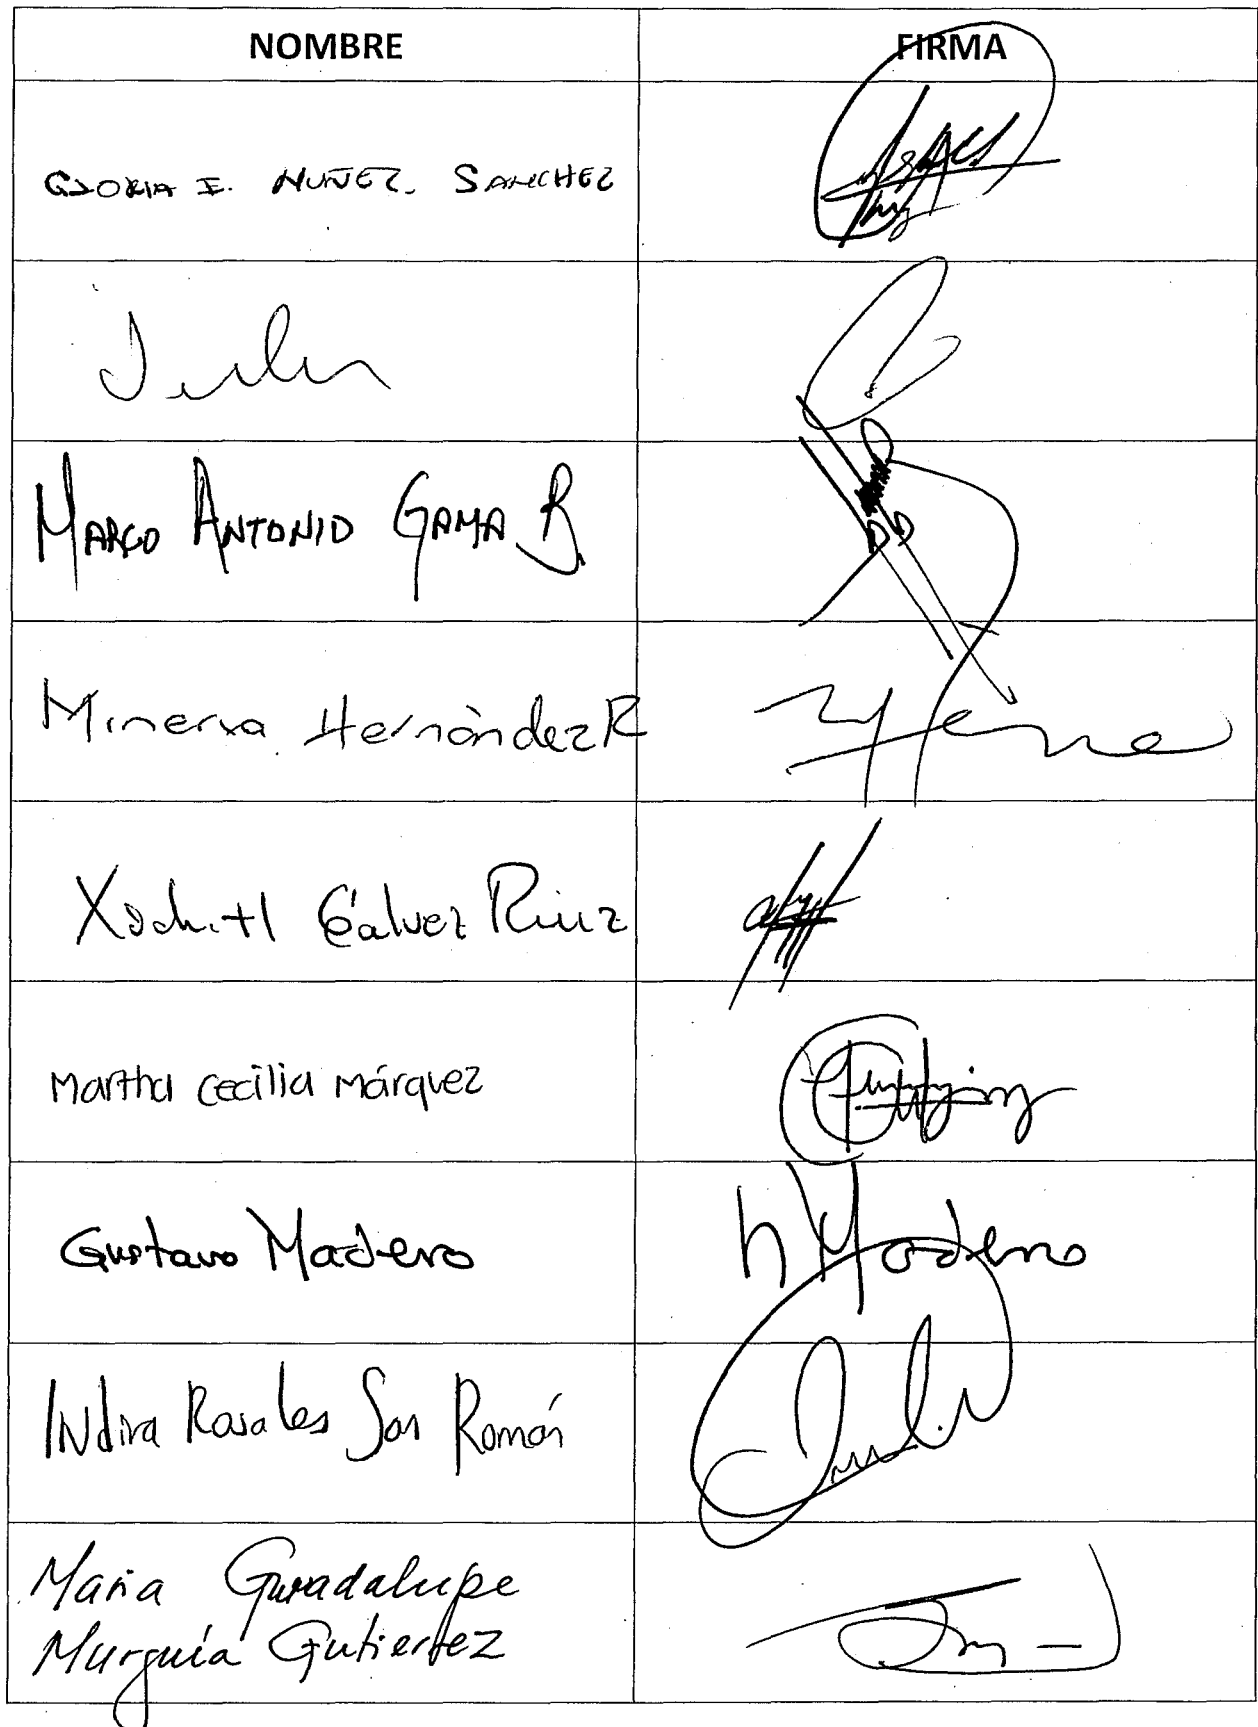 NOMBRE FIRMA
GLORIA E. NUÑEZ SANCHEZ
MARCO ANTONIO GAMA B.
Minerva Hernández R
Xóchitl Gálvez Ruiz
Martha Cecilia Márquez
Gustavo Madero h Madero
Indira Rosales San Román
Maria Guadalupe
Murguía Gutierrez